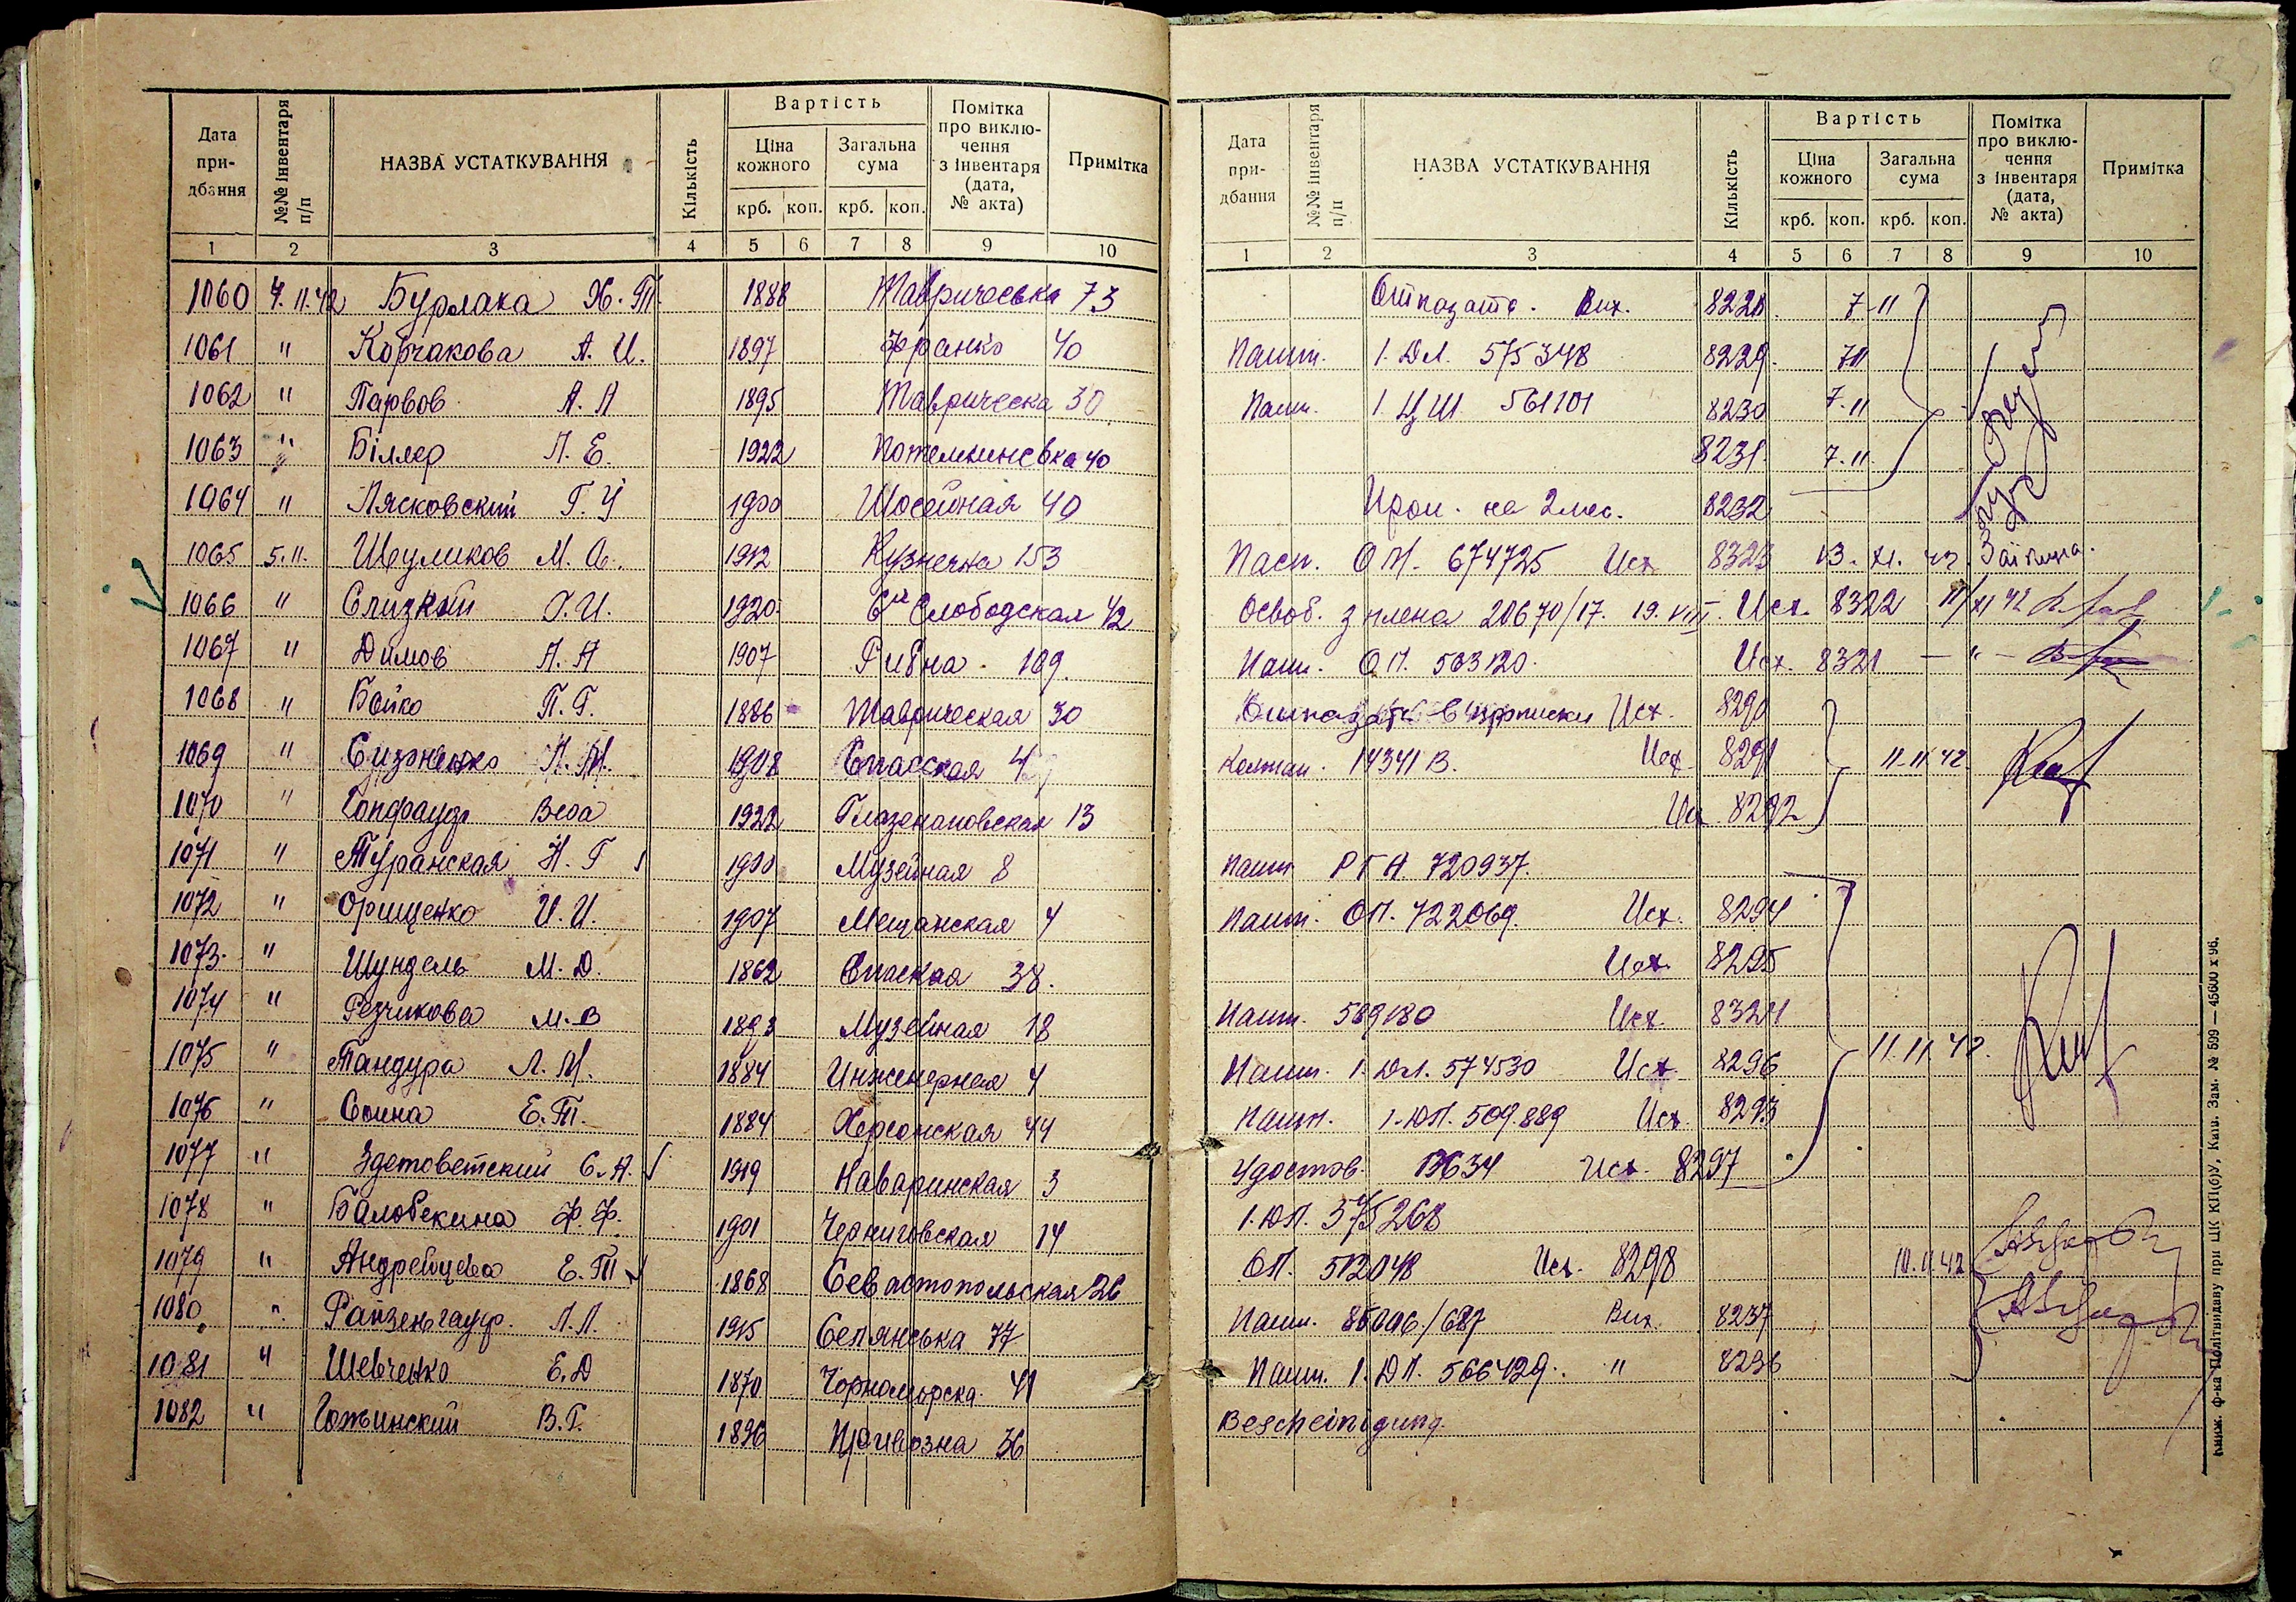 Дата при-дбання №№ інвентаря п/п НАЗВА УСТАТКУВАННЯ Кількість Вартість Ціна кожного крб. коп. Загальна сума крб. коп. Помітка про виклю-чення з інвентаря (дата, № акта) Примітка
1 2 3 4 5 6 7 8 9 10
1060 4.11.42 Бурлака Х. Т. 1888 Тавричеська 73
1061 " Корчакова А. И. 1897 Франко 40
1062 " Парвов А. А 1895 Таврическа 30
1063 " Біллер Л. Е. 1922 Потемкинська 40
1064 " Лясковский Г. У 1900 Шосейная 40
1065 5.11. Шкуликов М. 1912 Кузнечна 153
1066 " Слизкий И. 1920 Слободская 42
1067 " Димов А. А 1907 Рибна 109
1068 " Бойко П. Г. 1886 Таврическая 30
1069 " 1908 Спасская
1070 " Гопфауф Вера 1922 Глазенаповская 13
1071 " Туранская Н. Г 1900 Музейная 8
1072 " Орищенко И. И. 1907 Мещанская 4
1073 " Шундель М. Д. 1862 Спаская 38.
1074 " Резчикова М. В 1893 Музейная 18
1075 " Тандура Л. М. 1884 Инженерная 4
1076 " Соина Е. Т. 1884 Херсонская 44
1077 " Здетоветский С. А. 1919 Наваринская 3
1078 " Балобекина Ф. Ф. 1901 Черниговская 14
1079 " Андрейцева Е. Т 1868 Севастопольская 26
1080 " Райзенгауф. Л. Л. 1915 Селянська 77
1081 " Шевченко Е. Д 1870 Чорноморска 41
1082 " Готьинский В. Г. 1896 Привозна 36
Дата при-дбання №№ інвентаря п/п НАЗВА УСТАТКУВАННЯ Кількість Вартість Ціна кожного крб. коп. Загальна сума крб. коп. Помітка про виклю-чення з інвентаря (дата, № акта) Примітка
1 2 3 4 5 6 7 8 9 10
Отказать. Вих. 8228 7-11
Пашп. 1. ДЛ. 575348 8229 7.11
Пашп. 1. ЦШ. 561101 8230 7.11
8231 7.11
Проп. на 2 мес. 8232
Пасп. ОП. 674725 Исх 8323 13. XI. 42 Заікина.
Освоб. з плена 20670/17. 19. VIII. Исх. 8322
Пашп. ОП. 563120. Исх. 8321 — " —
Отказать в прописки Исх. 8290
14341 В. Исх 8291 11.11.42
Исх 8292
Пашп РГА 720937.
Пашп. ОП. 722069. Исх. 8294
Исх. 8295
Пашп. 589180 Исх. 8324
Пашп. 1. ДЛ. 574530 Исх. 8296 11.11.42.
Пашп. 1. ЮП. 509.889 Исх. 8293
Удостов. 13634 Исх. 8297
1. ЮП. 575268
ОП. 512048 Исх. 8298 10.11.42
Пашп. 85006/687 Вих. 8237
Пашп. 1. ДП. 566429. " 8236
Bescheinigung.
Книж. ф-ка Політвидаву при ЦК КП(б)У, Київ. Зам. № 599 — 45600 х 96.